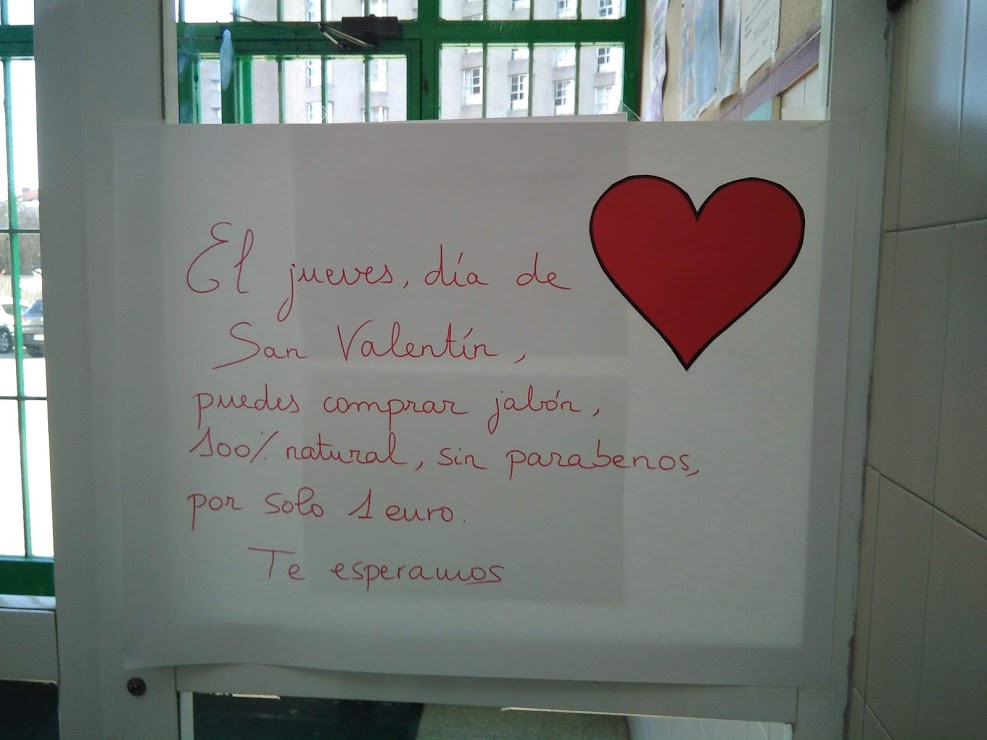 El jueves, día de
San Valentín,
puedes comprar jabón,
100% natural, sin parabenos,
por solo 1 euro.
Te esperamos